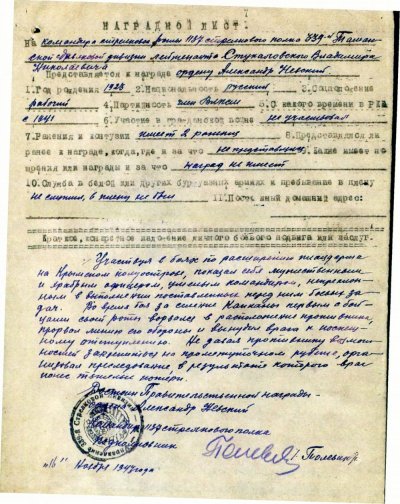 НАГРАДНОЙ ЛИСТ.
На командира стрелковой роты 1137 стрелкового полка 339й Таман-
ской стрелковой дивизии лейтенанта Стукаловского Владимира
Николаевича
Представляется к награде ордену Александр Невский
1.Год рождения 1923 2.Национальность русский 3.Соцположение
рабочий 4.Партийность член 5.С какого времени в РККА
с 1941 6.Участие в гражданской войне не участвовал
7.Ранения и контузии имеет 2 ранения 8.Представлялся ли
ранее к награде, когда, где и за что не представлялся 9.Какие имеет по-
ощрения или награды и за что наград не имеет
10.Служба в белой или других буржуазных армиях и пребывание в плену
не служил, в плену не был 11.Постоянный домашний адрес:
Краткое, конкретное изложение личного боевого подвига или заслуг.
Участвуя в боях по расширению плацдарма
на Крымском полуострове, показал себя мужественным
и храбрым офицером, умелым командиром,
в выполнении поставленных перед ним боевых за-
дач. Во время боя за селение первым с бой-
цами своей роты ворвался в расположение противника,
прорвал линию его обороны и вынудил врага к
отступлению. Не давая противнику возмож-
ностей закрепиться на промежуточном рубеже, орга-
низовал преследование в результате которого враг
понес тяжелые потери.
Достоин Правительственной награды-
Александр Невский
Командир 1137 стрелкового полка
Подполковник
"16" Ноября 1943 года